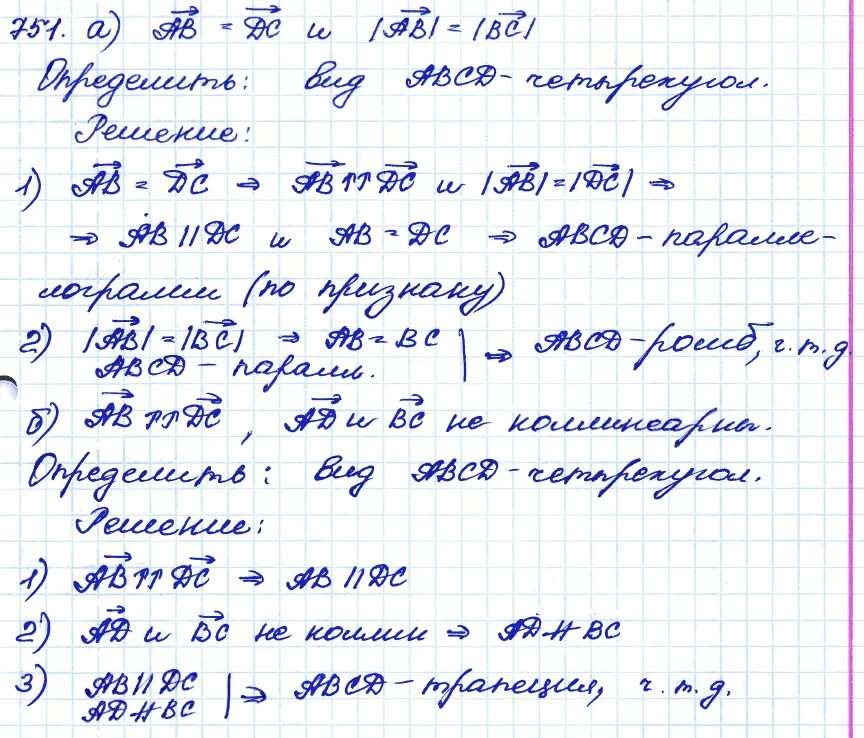 751. а) AB⃗ = DC⃗ и |AB⃗| = |BC⃗|
Определить: вид ABCD - четырехугол.
Решение:
1) AB⃗ = DC⃗ ⇒ AB⃗ ↑↑ DC⃗ и |AB⃗| = |DC⃗| ⇒
⇒ AB || DC и AB = DC ⇒ ABCD - паралле-
лограмм (по признаку)
2) |AB⃗| = |BC⃗| ⇒ AB = BC | ⇒ ABCD - ромб, ч.т.д.
ABCD - паралл.
б) AB⃗ ↑↑ DC⃗, AD⃗ и BC⃗ не коллинеарны.
Определить: вид ABCD - четырехугол.
Решение:
1) AB⃗ ↑↑ DC⃗ ⇒ AB || DC
2) AD⃗ и BC⃗ не коллин ⇒ AD ∦ BC
3) AB || DC | ⇒ ABCD - трапеция, ч.т.д.
AD ∦ BC